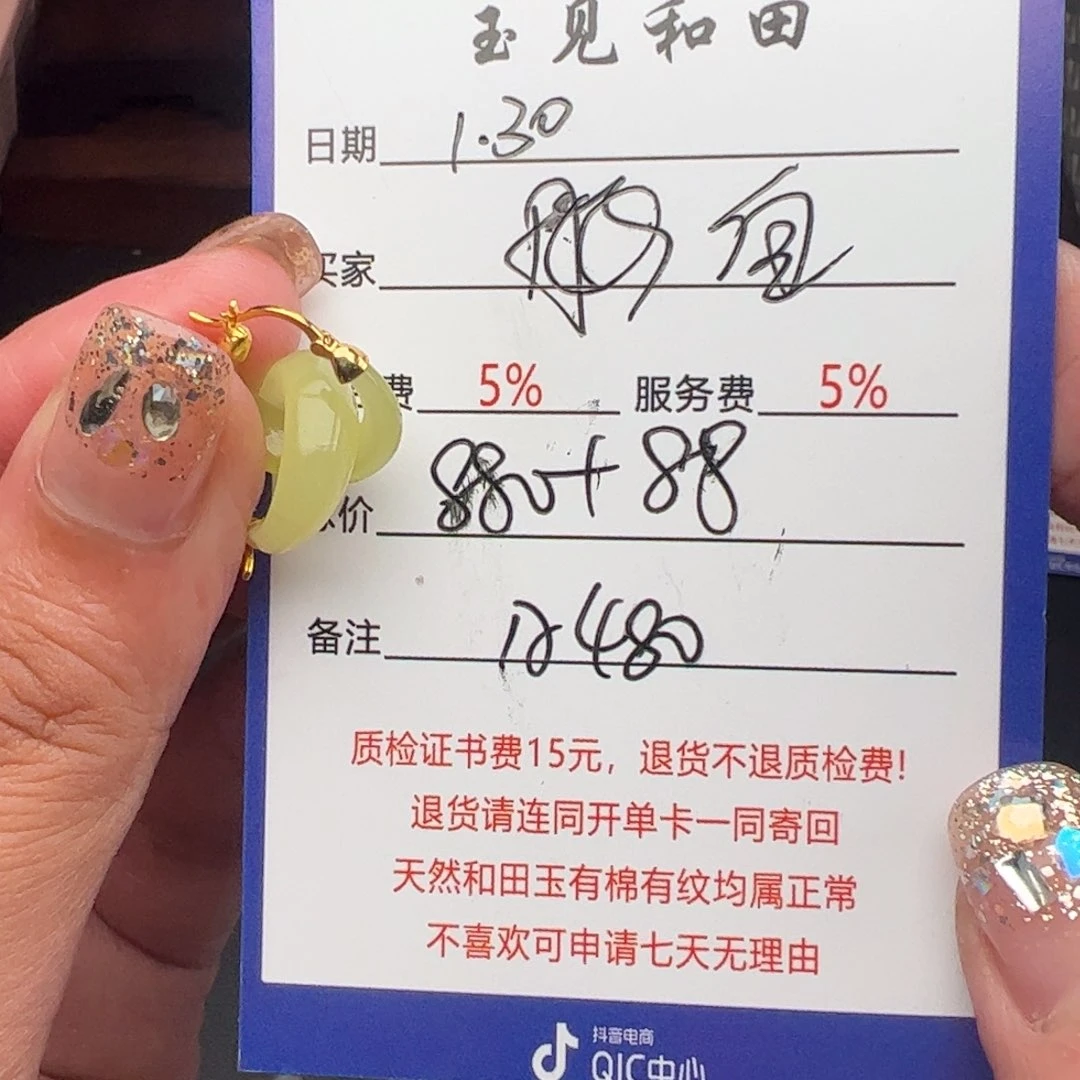 玉见和田
日期 1.30
买家
费 5% 服务费 5%
价 880+88
备注 480
质检证书费15元，退货不退质检费！
退货请连同开单卡一同寄回
天然和田玉有棉有纹均属正常
不喜欢可申请七天无理由
抖音电商
QIC中心